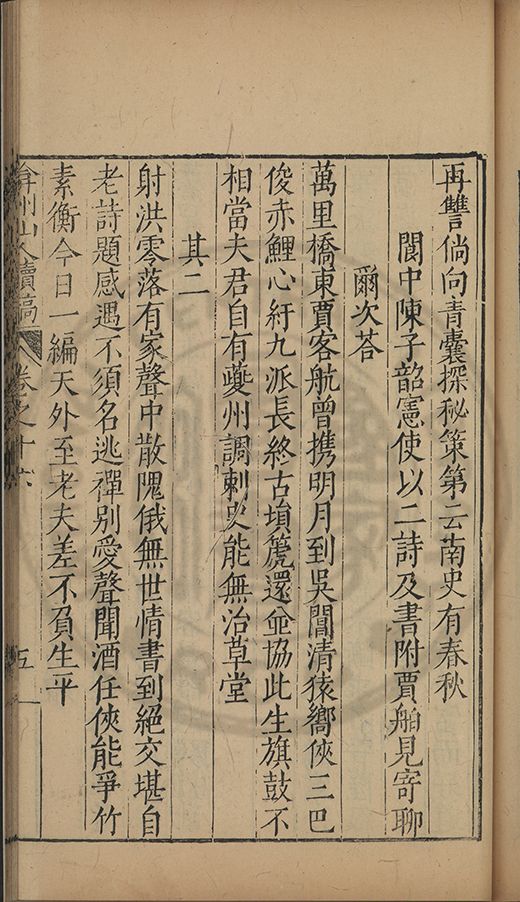 再讐倘向青囊探秘策第云南史有春秋
閬中陳子韶憲使以二詩及書附賈舶見寄聊
爾次荅
萬里橋東賈客航曾携明月到吳閶清猿嚮俠三巴
俊赤鯉心紆九派長終古塤篪還並協此生旗鼓不
相當夫君自有夔州調刺史能無治草堂
其二
射洪零落有家聲中散隗俄無世情書到絕交堪自
老詩題感遇不須名逃禪別愛聲聞酒任俠能爭竹
素衡今日一編天外至老夫差不負生平
弇州山人續稿 卷之十六 五